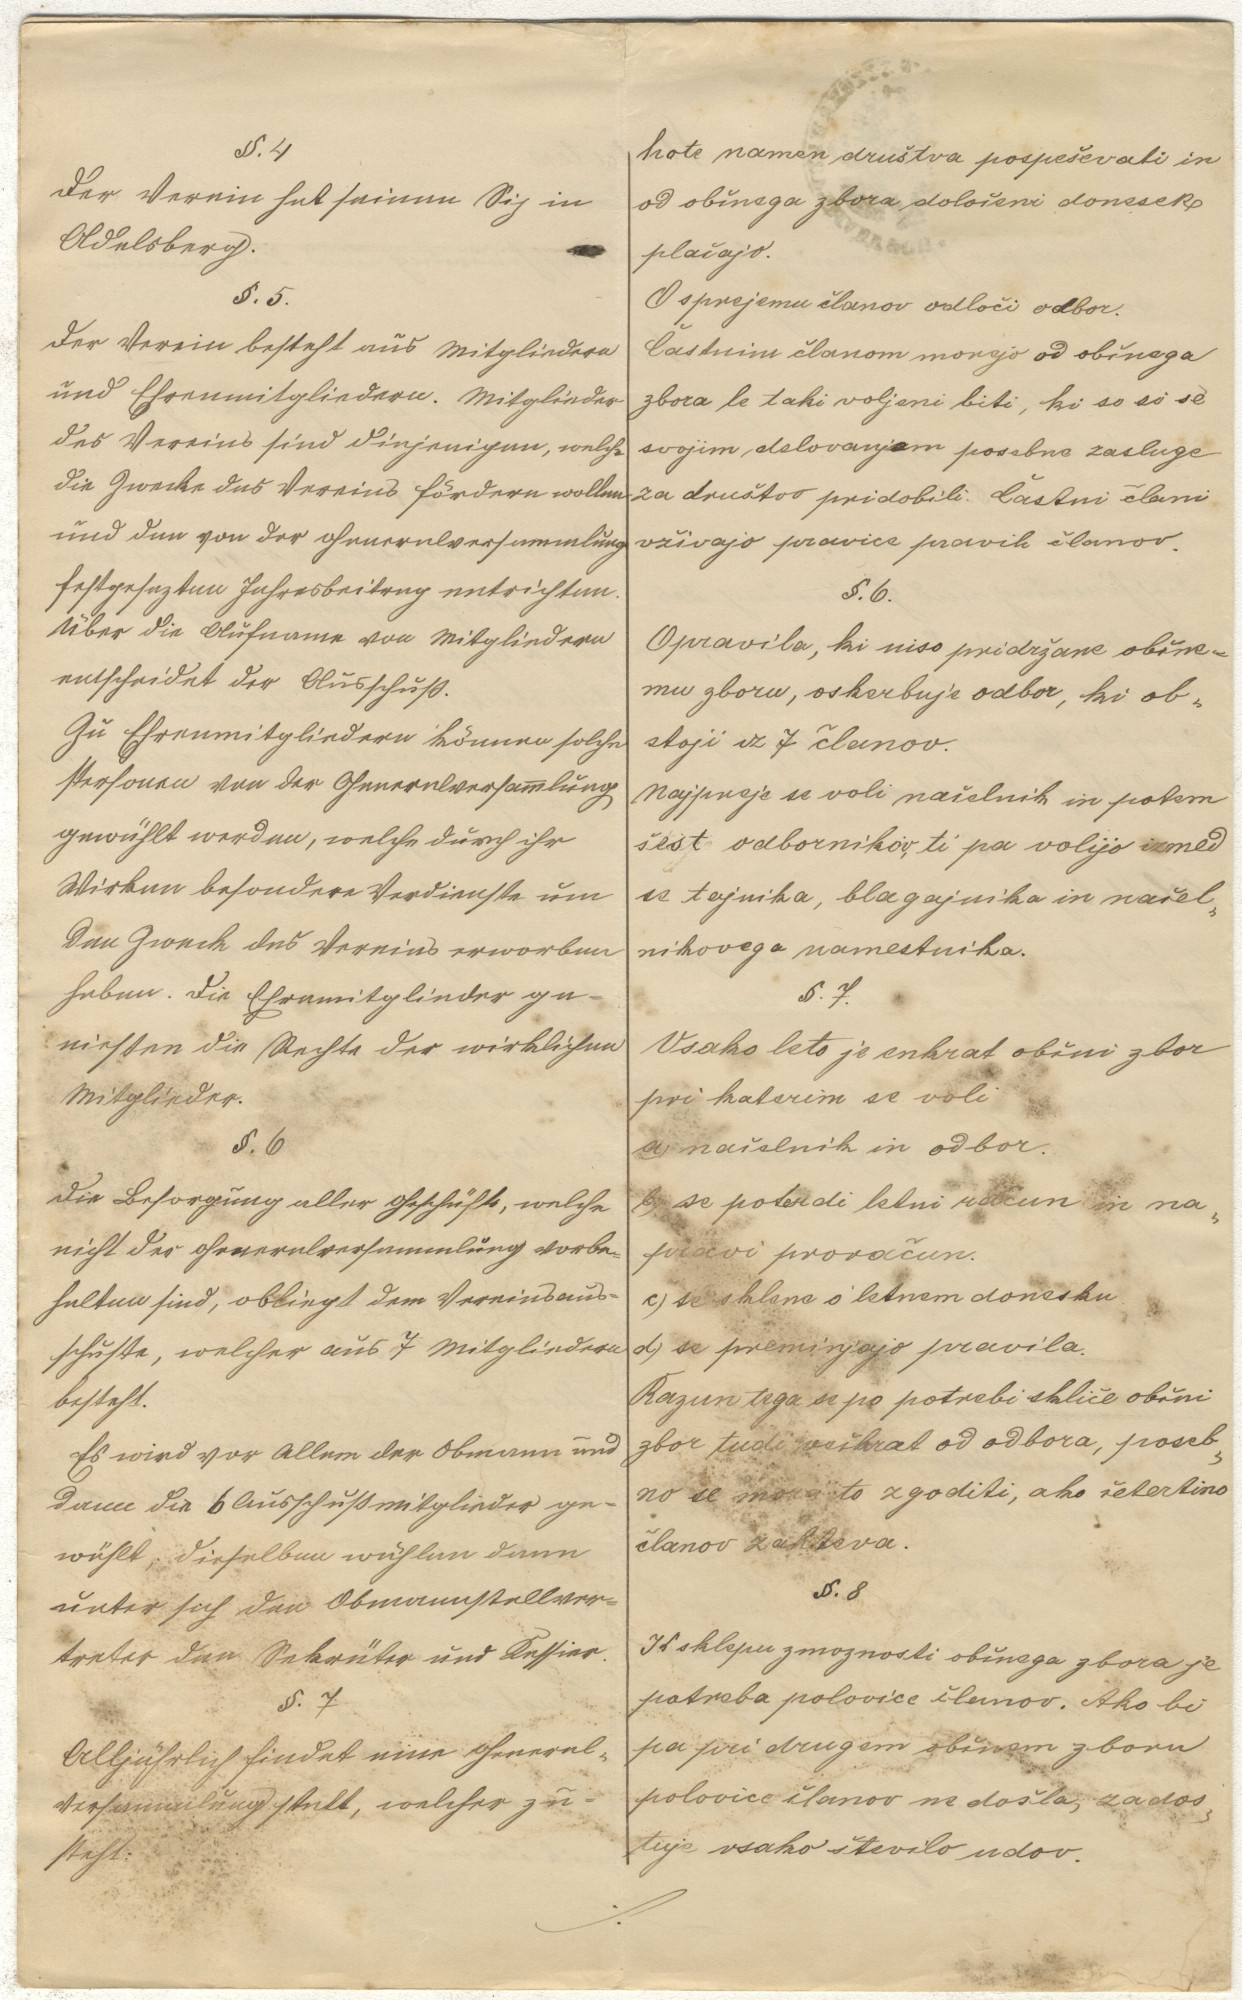 §. 4
Der Verein hat seinen Siz in
Adelsberg.
§. 5.
Der Verein besteht aus Mitgliedern
und Ehrenmitgliedern. Mitglieder
des Vereins sind diejenigen, welche
die Zwecke des Vereins fördern wollen
und den von der Generalversammlung
festgesezten Jahresbeitrag entrichten.
Über die Aufname von Mitgliedern
entscheidet der Ausschuß.
Zu Ehrenmitgliedern können solche
Personen von der Generalversam̅lung
gewählt werden, welche durch ihr
Wirken besondere Verdienste um
den Zweck des Vereins erworben
haben. Die Ehrenmitglieder ge-
nießen die Rechte der wirklichen
Mitglieder.
§. 6
Die Besorgung aller Geschäfte, welche
nicht der Generalversammlung vorbe=
halten sind, obliegt dem Vereinsaus=
schuße, welcher aus 7 Mitgliedern
besteht.
Es wird vor Allem der Obmann und
dann die 6 Ausschußmitglieder ge-
wählt, dieselben wählen dann
unter sich den Obmannstellver=
treter den Sekretär und Kassier.
§. 7
Alljährlich findet eine General=
versammlung statt, welcher zu=
steht:
hote namen društva pospeševati in
od občnega zbora določeni donesek
plačajo.
O sprejemu članov odloči odbor.
Častnim članom morejo od občnega
zbora le taki voljeni biti, ki so si se
svojim delovanjem posebne zasluge
za društvo pridobili. Častni člani
vživajo pravice pravih članov.
§. 6.
Opravila, ki niso pridržane občne=
mu zboru, oskerbuje odbor, ki ob=
stoji iz 7 članov.
Najpreje se voli načelnik in potem
šest odbornikov, ti pa volijo izmed
se tajnika, blagajnika in načel=
nikovega namestnika.
§. 7.
Vsako leto je enkrat občni zbor
pri katerim se voli
a) načelnik in odbor.
b) se poterdi letni račun in na=
pravi proračun.
c) se sklene o letnem donesku
d) se preminjajo pravila.
Razun tega se po potrebi skliče občni
zbor tudi večkrat od odbora, poseb=
no se mora to zgoditi, ako četertino
članov zahteva.
§. 8
K sklepu zmoznosti občnega zbora je
potreba polovice članov. Ako bi
pa pri drugem občnem zboru
polovice članov ne došla, zados=
tuje vsako število udov.